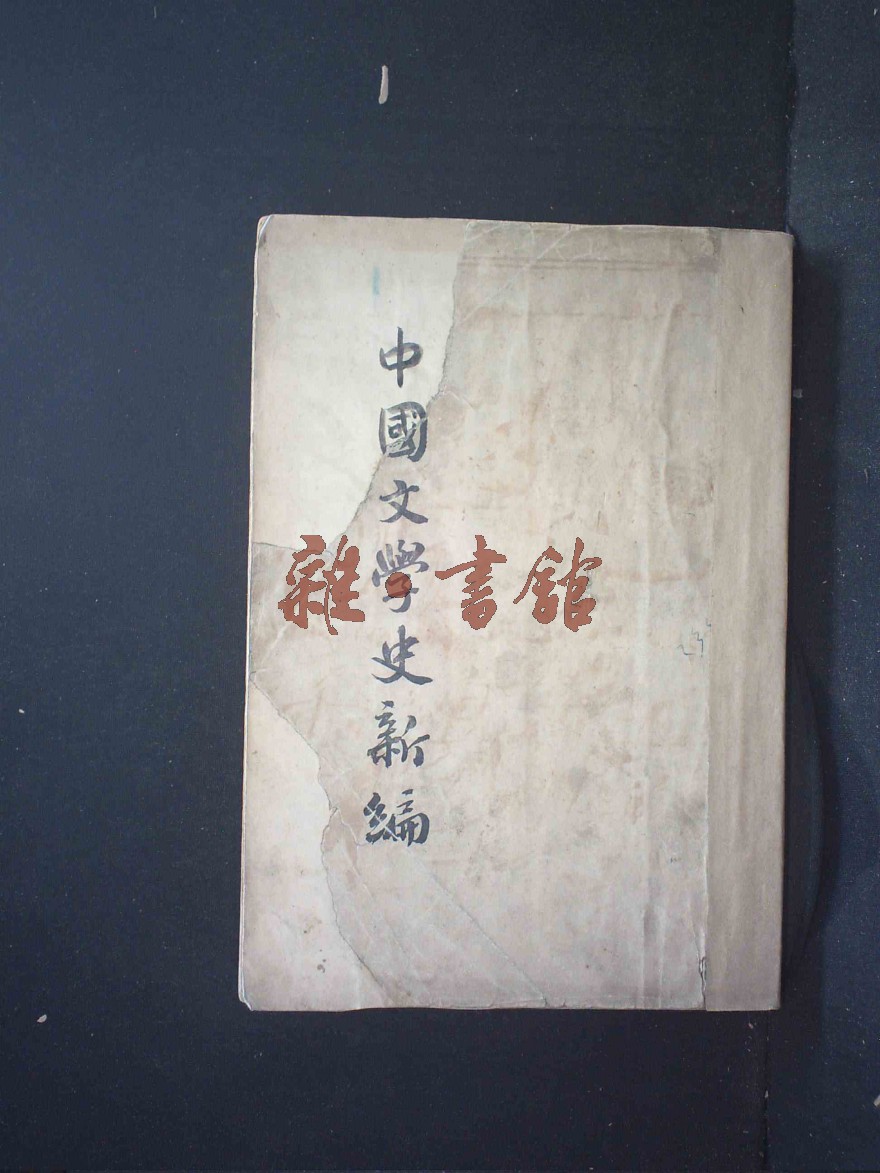 中國文學史新編
雜·書館